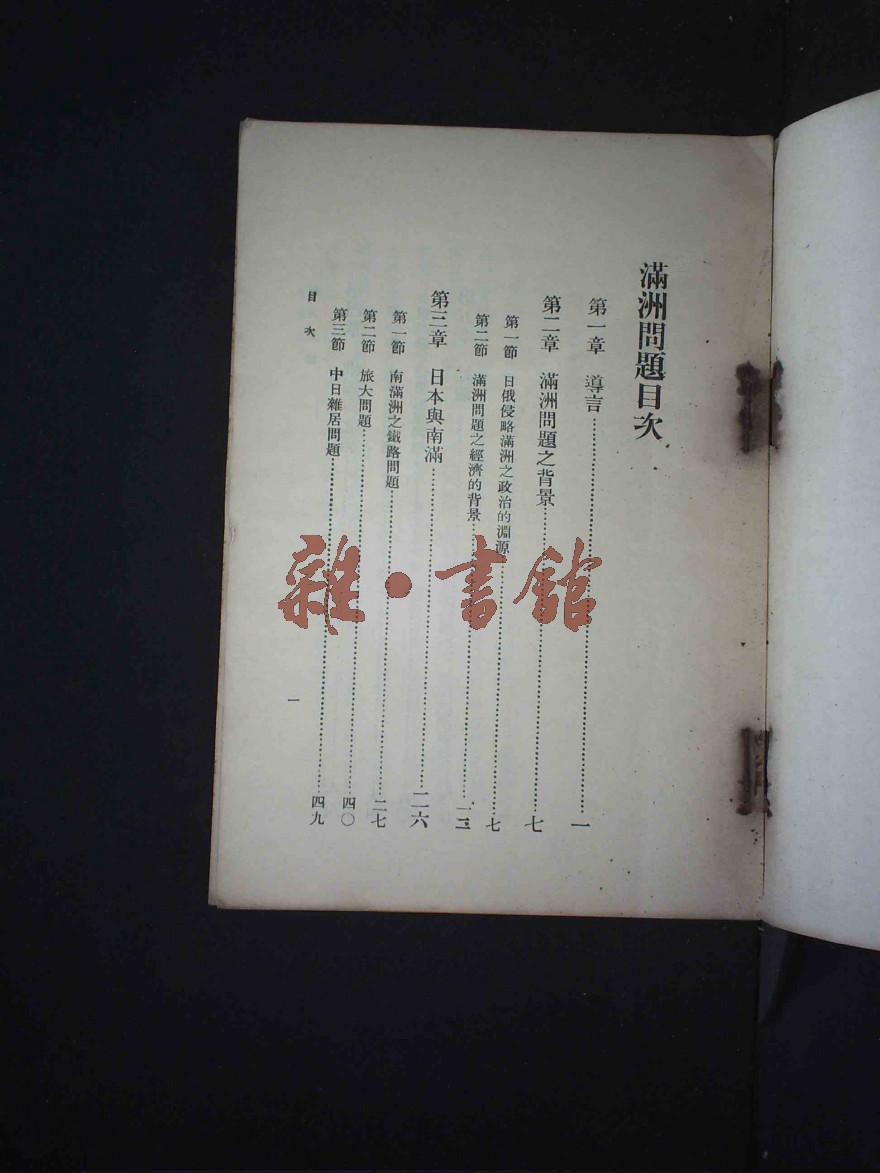 滿洲問題目次
第一章　導言……………………一
第二章　滿洲問題之背景……………………七
第一節　日俄侵略滿洲之政治的淵源……………………七
第二節　滿洲問題之經濟的背景……………………一三
第三章　日本與南滿……………………二六
第一節　南滿洲之鐵路問題……………………二七
第二節　旅大問題……………………四〇
第三節　中日雜居問題……………………四九
目次
一
雜·書館